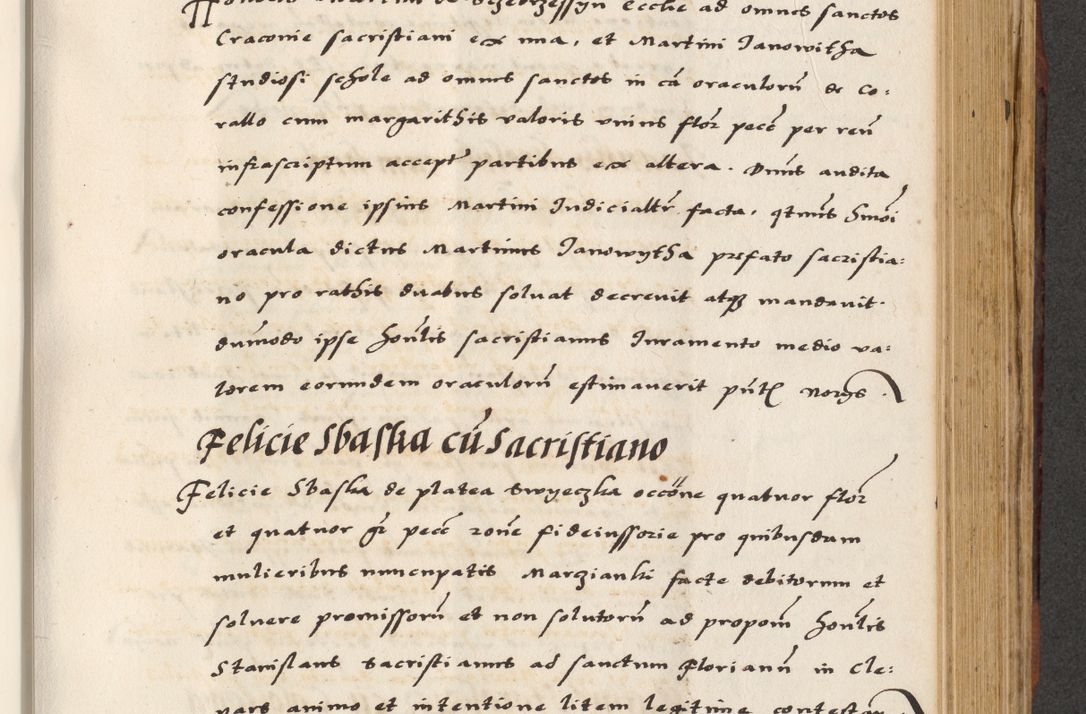 Martini de ecclie ad omnes sanctos
Craconie sacristiani ex vna, et Martini Janowitha
studiosi schole ad omnes sanctos in cā oraculorū de Co:
rallo cum margarithis valoris vnius flor pecc per reū
infrascriptum accept partibus ex altera. Dnus audita
confessione ipsius Martini Iudicialtr facta, qtnus hmōi
oracula dictus Martinus Janowytha prefato sacristia:
no pro rathis duabus soluat decreuit atq3 mandauit.
dūmodo ipse honlis sacristianus Iuramento medio va:
lorem eorundem oraculorū estimauerit pnt
Felicie Sbaska cū Sacristiano
Felicie Sbaska de platea Swyeczka occōne quatuor flor
et quatuor gr pecc rone fideiussorie pro quibusdam
mulieribus nuncupatis Marczianki facte debitorum et
soluere promissorū et non solutorū ad propom honlis
Stanislaus Sacristianus ad sanctum Floriann in Cle:
pars animo et intentione litem legitime contestan